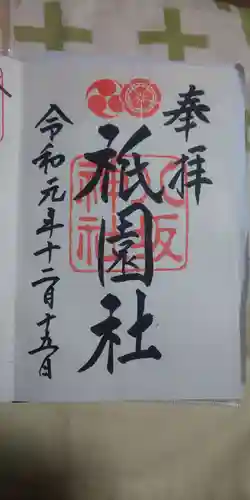 奉拝
八坂
神社
祇園社
令和元年十二月十五日